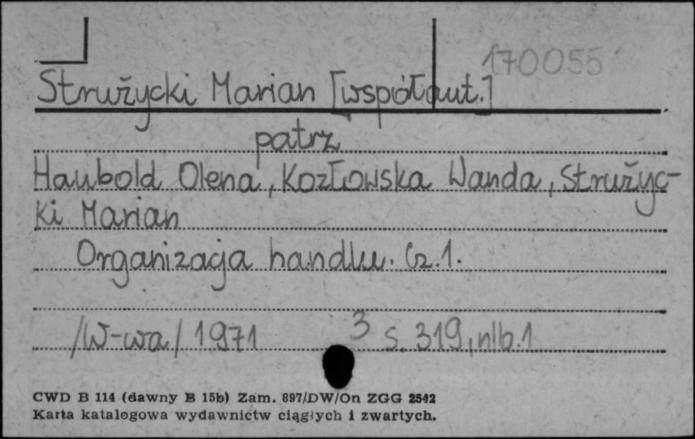 170055
Strużycki Marian [współaut.]
patrz
Haubold Olena, Kozłowska Wanda, Strużyc-
ki Marian
Organizacja handlu. Cz.1.
/W-wa/ 1971 3 s. 319, nlb.1
CWD B 114 (dawny B 15b) Zam. 897/DW/On ZGG 2542
Karta katalogowa wydawnictw ciągłych i zwartych.